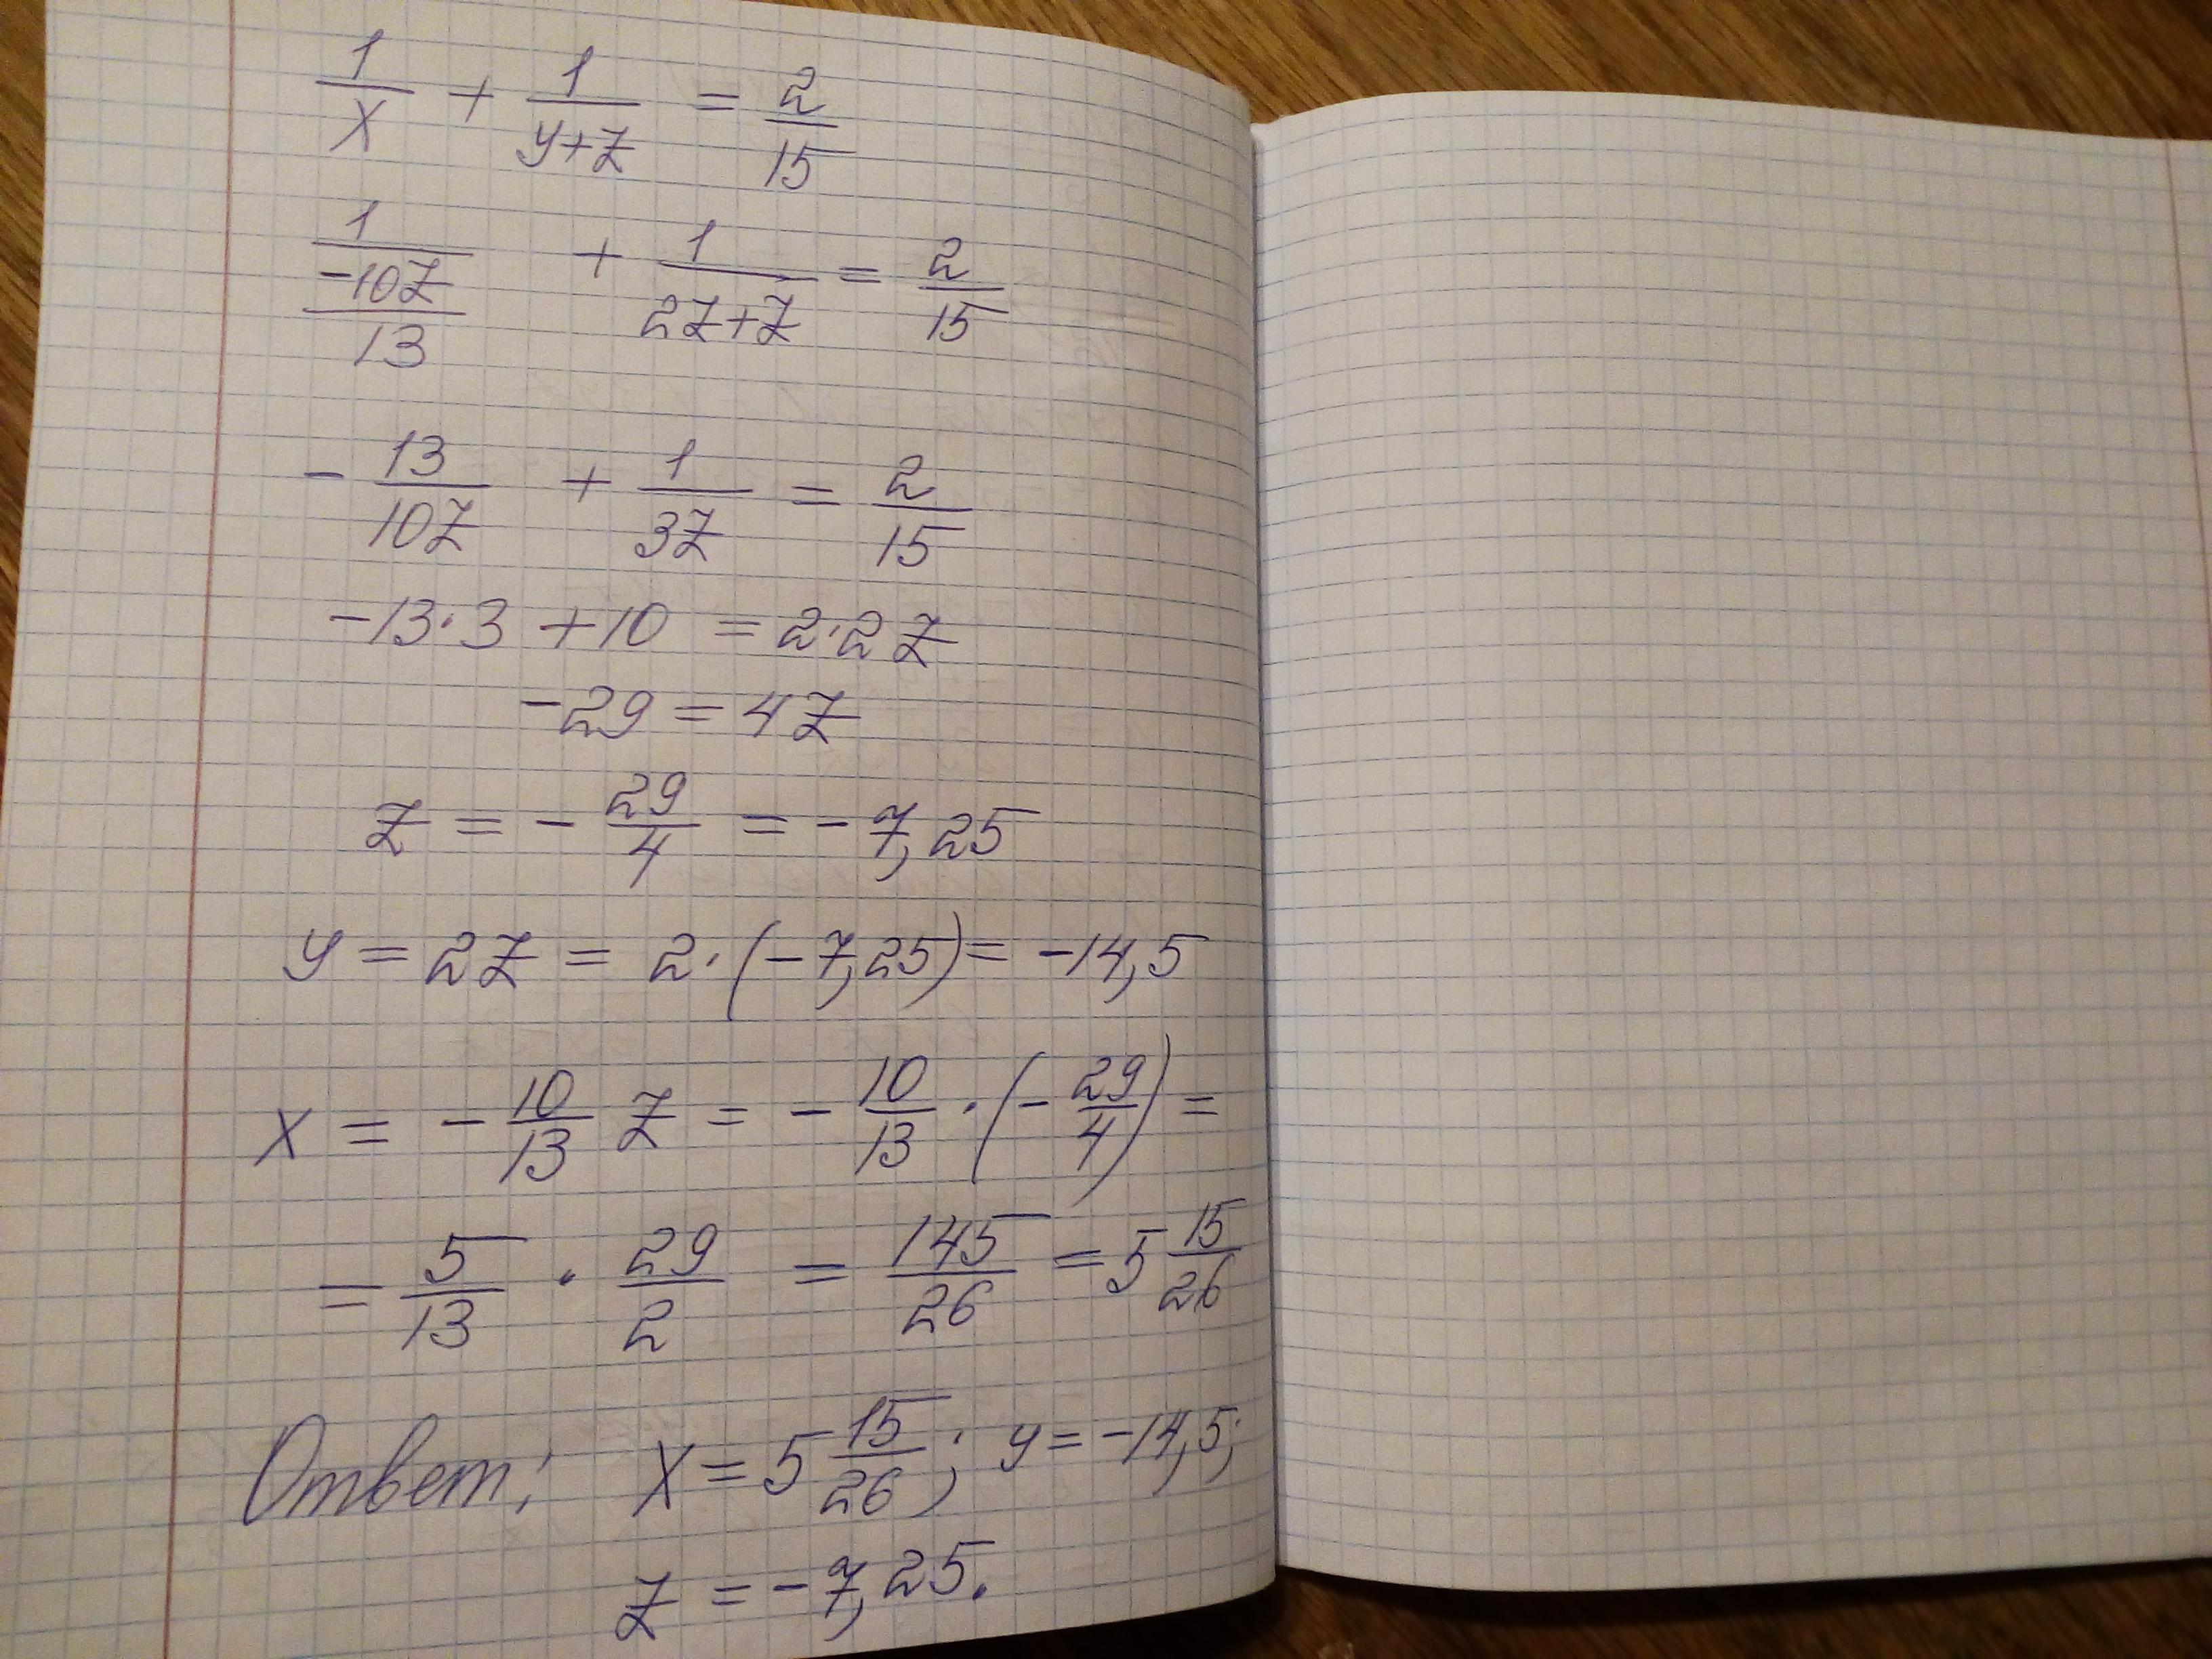 1/x + 1/(y+z) = 2/15
1/(-10z/13) + 1/(2z+z) = 2/15
- 13/(10z) + 1/(3z) = 2/15
-13·3 + 10 = 2·2z
-29 = 4z
z = - 29/4 = - 7,25
y = 2z = 2·(-7,25) = -14,5
x = - 10/13 z = - 10/13 · (- 29/4) =
= 5/13 · 29/2 = 145/26 = 5 15/26
Ответ: x = 5 15/26; y = -14,5;
z = -7,25.